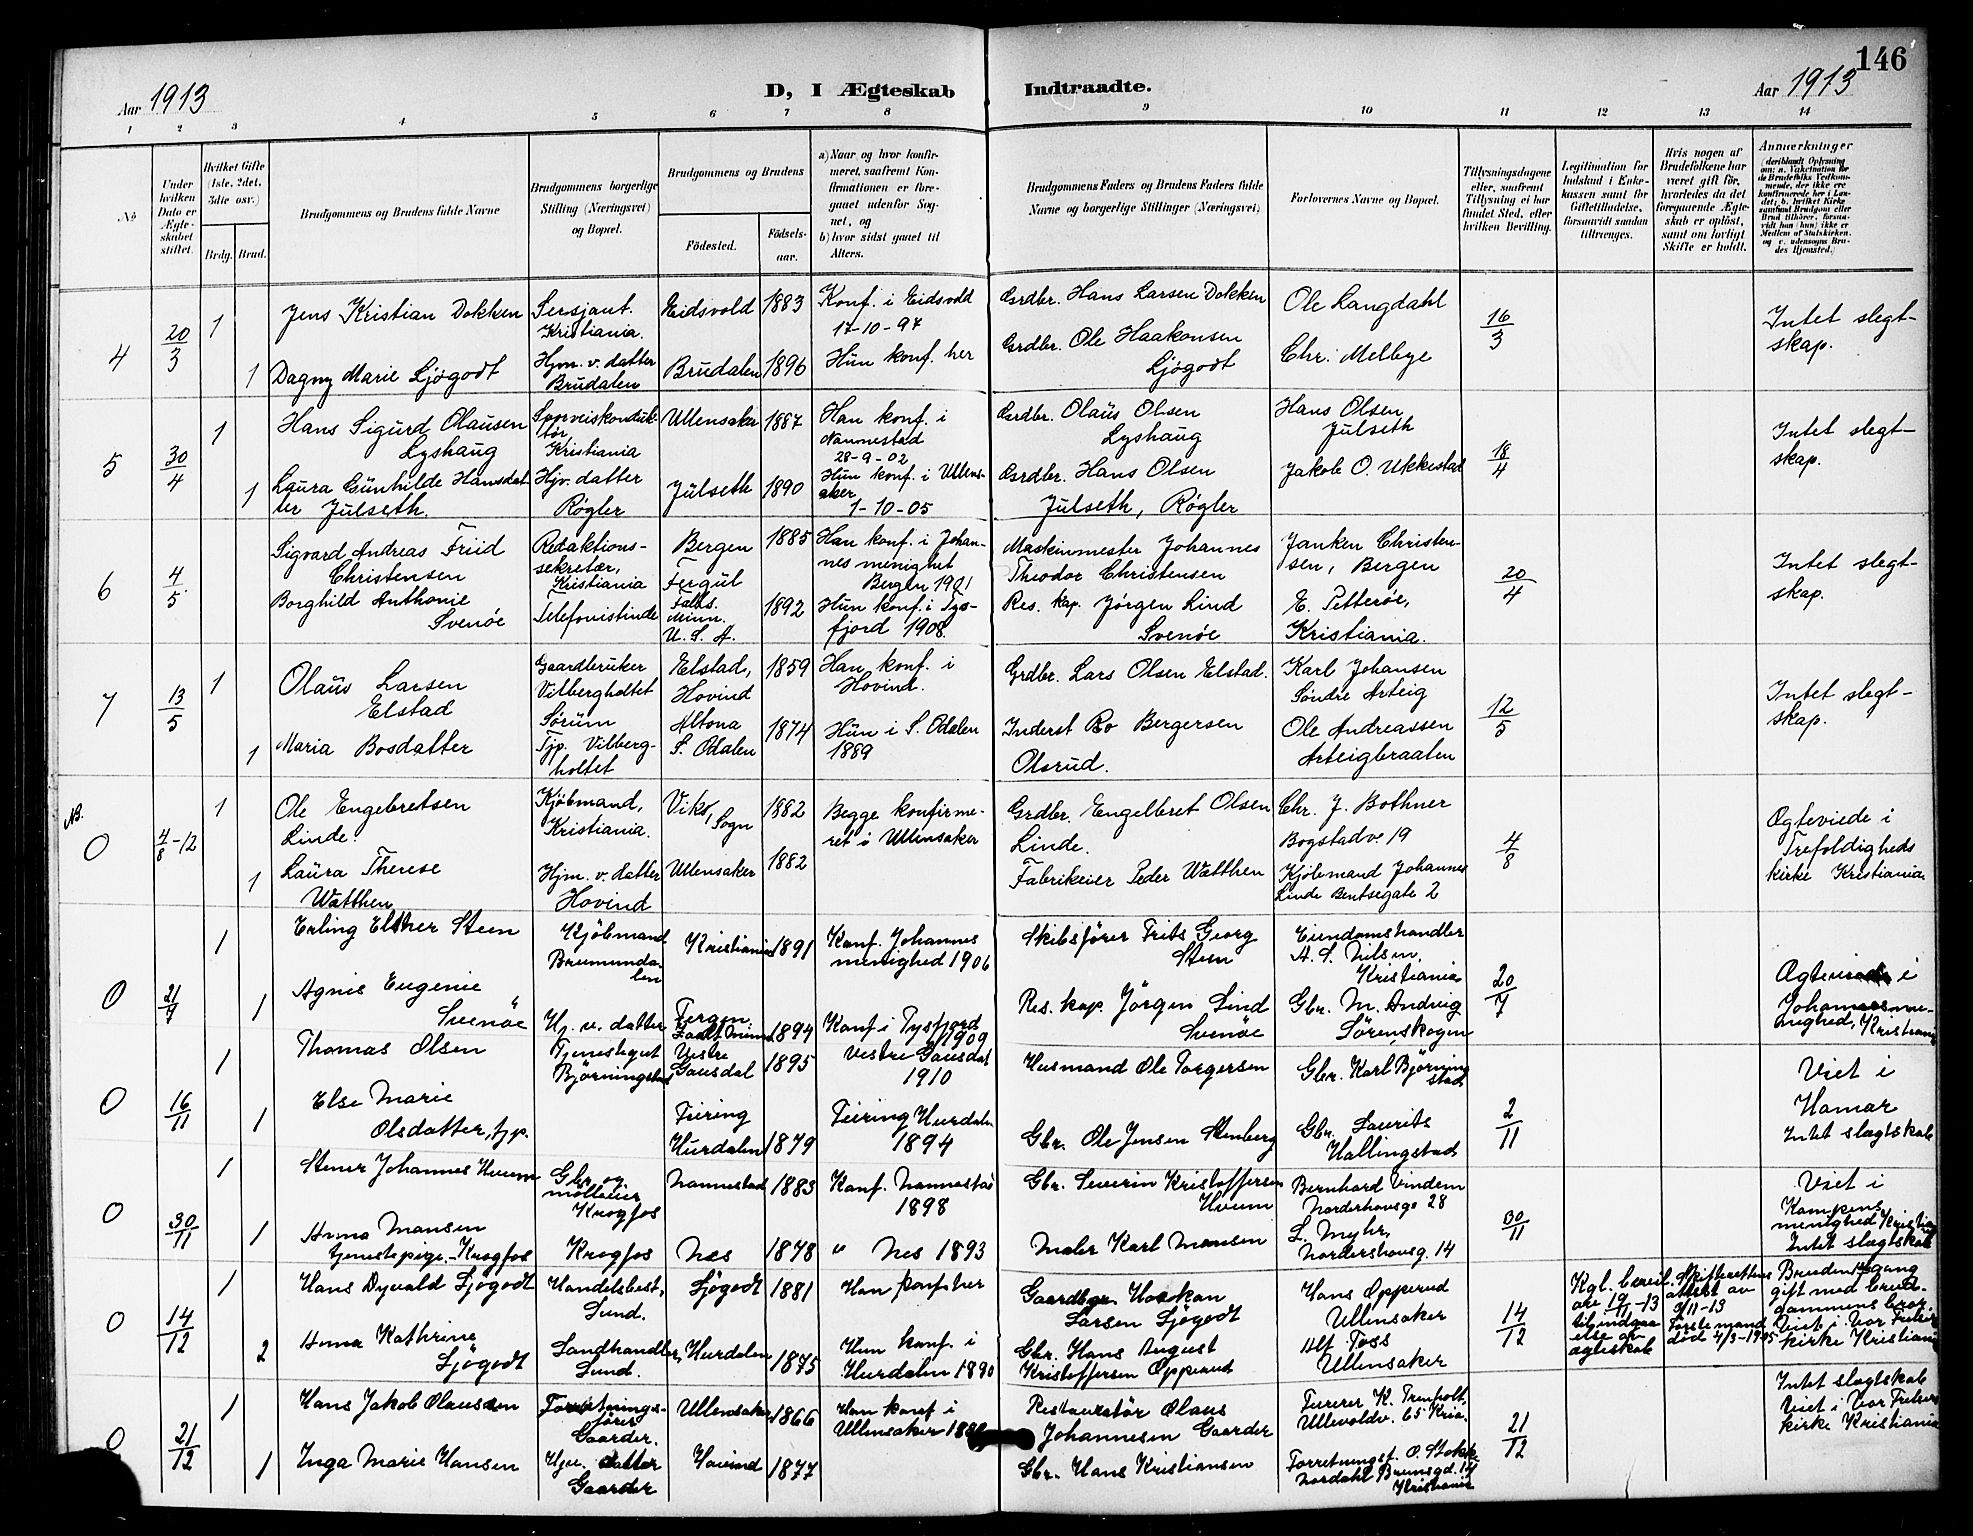 146
Aar 1913
D, I Ægteskab Indtraadte.
Aar 1913
1 2 3 4 5 6 7 8 9 10 11 12 13 14
No
Under hvilken Dato er Ægteskabet stiftet.
Hvilket Gifte (1ste, 2det, 3die osv.)
Brdg. Brud.
Brudgommens og Brudens fulde Navne
Brudgommens borgerlige Stilling (Næringsvei) og Bopæl.
Brudgommens og Brudens
Födested.
Födselsaar.
a) Naar og hvor konfirmeret, saafremt Konfirmationen er foregaaet udenfor Sognet, og
b) hvor sidst gaaet til Alters.
Brudgommens Faders og Brudens Faders fulde Navne og borgerlige Stillinger (Næringsvei)
Forlovernes Navne og Bopæl.
Tillysningsdagene eller, saafremt Tillysning ei har fundet Sted, efter hvilken Bevilling.
Legitimation for Indskud i Enkekassen samt for Giftetilladelse, forsaavidt saadan tiltrænges.
Hvis nogen af Brudefolkene har været gift för, hvorledes da det foregaaende Ægteskab er oplöst, samt om lovligt Skifte er holdt.
Anmærkninger
4
20/3
1
Jens Kristian Dokken
Sersjant.
Kristiania.
Eidsvold
1883
Konf. i Eidsvold
17-10-97
Grdbr. Hans Larsen Dokken
Ole Langdahl
16/3
Intet slegt-
skap.
1
Dagny Marie Ljøgodt
Hjm. v. datter
Brudalen
Brudalen
1896
Hun konf. her
Grdbr. Ole Haakonsen
Ljøgodt
Chr. Melbye
5
30/4
1
Hans Sigurd Olausen
Lyshaug
Sporveiskonduk-
tør,
Kristiania
Ullensaker
1887
Han konf. i
Nannestad
28-9-02
Grdbr. Olaus Olsen
Lyshaug
Hans Olsen
Julseth
18/4
Intet slegt-
skap.
1
Laura Gunhilde Hansdat-
ter Julseth.
Hjv. datter
Røgler
Julseth
1890
Hun konf. i Ullens-
aker
1-10-05
Grdbr. Hans Olsen
Julseth, Røgler
Jakob O. Ukkestad
6
4/5
Sigvard Andreas Friid
Christensen
Redaktions-
sekretær,
Kristiania
Bergen
1885
Han konf. i Johan-
nes menighet
Bergen 1901
Maskinmester Johannes
Theodor Christensen
Janken Christen-
sen, Bergen
20/4
Intet slegt-
skap.
Borghild Anthonie
Svenøe
Telefonistinde
Fergus
Falls.
Minn.
U. S. A.
1892
Hun konf. i Tys-
fjord 1908
Res. kap. Jørgen Lind
Svenøe
E. Petterøe,
Kristiania.
7
13/5
1
Olaus Larsen
Elstad
Gaardbruker
Vilbergholtet
Sørum
Elstad,
Hovind
1859
Han konf. i
Hovind.
Grdbr. Lars Olsen Elstad.
Karl Johansen
Søndre Arteig
12/5
Intet slegt-
skap.
1
Maria Bosdatter
Tjp. Vilberg-
holtet
Altona
S. Odalen
1874
Hun i S. Odalen
1889
Inderst Bo Bergersen
Olsrud.
Ole Andreassen
Arteigbraaten
NB.
O
4/8-12
1
Ole Engebretsen
Linde.
Kjøbmand,
Kristiania.
Viks, Sogn
1882
Begge konfirme-
ret i Ullensaker
Grdbr. Engelbret Olsen
Linde.
Chr. J. Bothner
Bogstadv. 19
4/8
Ægteviede i
Trefoldigheds
kirke Kristiania
1
Laura Therese
Watthen
Hjm. v. datter
Hovind
Ullensaker
1882
Fabrikeier Peder Watthen
Kjöbmand Johannes
Linde Bentsegate 2
O
1
Erling Elster Steen
Kjøbmand
Brumunda-
len
Kristiania
1891
Konf. Johannes
menighed 1906
Skibsfører Frits Georg
Steen
Eiendomshandler
A. S. Nilsen,
Kristiania
Agnes Eugenie
Svenöe
1
Hj. v. datter
Fergen
1894
Konf. i Tysfjord
1909
Res. kap. Jörgen Lind
Svenöe
Gbr. M. Andvig
Sörenskogen
Johannesme-
nighed, Kristiania
O
16/11
1
Thomas Olsen
Tjenestegut
Bjørningstad
Vestre
Gausdal
1895
Vestre Gausdal
1910
Husmand Ole Torgersen
Gbr. Karl Bjørning
stad
2/11
Viet i
Hamar
Intet slægtskab
1
Else Marie
Olsdatter, tjp.
Feiring
Hurdalen
1879
Feiring Hurdalen
1894
Gbr. Ole Jensen Stenberg
Gbr. Laurits
Hallingstad
O
30/11
1
Stener Johannes Hveem
Gbr. og
mølleeier
Krogfos
Nannestad
1883
Konf. Nannestad
1898
Gbr. Severin Kristoffersen
Hveem
Bernhard Vindem
Norderhovsg. 28
30/11
Viet i
Kampens
menighed Kristia
Intet slægtskab
1
Anna Monsen
tjenestepige.-Krogfos
Krogfos
Nes
1878
" Nes 1893
Maler Karl Monsen
L. Myhr,
Norderhovsg. 14
O
14/12
1
Hans Dyvald Ljøgodt
Handelsbest.,
Lund.
Ljøgodt
1881
Han konf. her
Gaardbr. Haakon
Larsen Ljøgodt
Hans Opperud
Ullensaker
14/12
Kgl. bevil.
Skifterettens
attest av
Første mand
død 4/3-1905
ægteskab
Bruden
gift med brud-
gommens bror.
Viet i Vor Frelser
kirke Kristiania
2
Anna Kathrine
Ljøgodt
Landhandler,
Lund.
Hurdalen
1875
Hun konf. i
Hurdalen 1890
Gbr. Hans August
Kristoffersen Opperud
Alf Foss
Ullensaker
O
21/12
1
Hans Jakob Olaussen
Forretnings-
fører
Gaarder.
Ullensaker
1866
Han konf. i
Ullensaker
Restauratør Olaus
Johannesen Gaarder
Ullevoldv. 65 Kria.
21/12
Intet slægtskab
Viet i Vor Frelsers
kirke Kristiania
1
Inga Marie Hansen
Hjv. datter
Gaarder
Hovind
1877
Gbr. Hans Kristiansen
Forretningsf. O. Stokke
Nordahl Brunsgd. 14
Kristiania